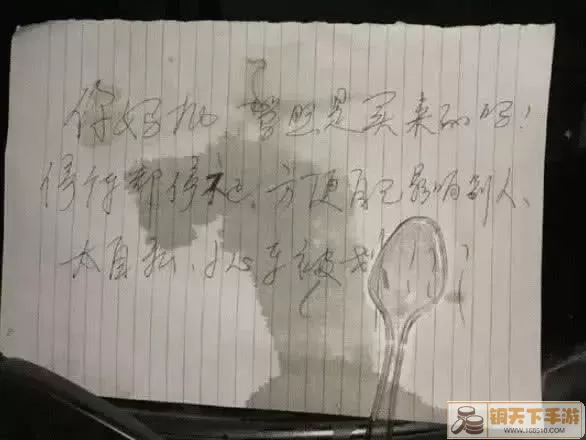 你妈批 驾照是买来的吗!
停车都停不起、方便自己影响别人、
太自私、小心车被划
天下手游
www.168510.com